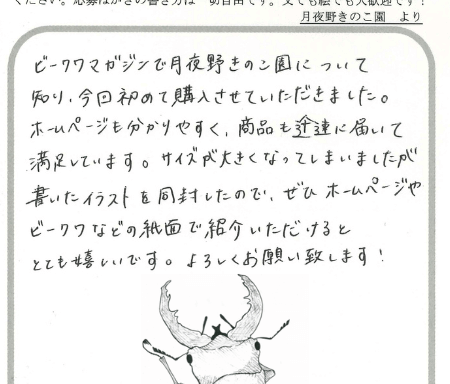 ください。応募はがきの書き方は一切自由です。文でも絵でも大歓迎です！
月夜野きのこ園　より
ビークワマガジンで月夜野きのこ園について
知り、今回初めて購入させていただきました。
ホームページも分かりやすく、商品も迅速に届いて
満足しています。サイズが大きくなってしまいましたが
書いたイラストを同封したので、ぜひホームページや
ビークワなどの紙面で紹介いただけると
とても嬉しいです。よろしくお願い致します！